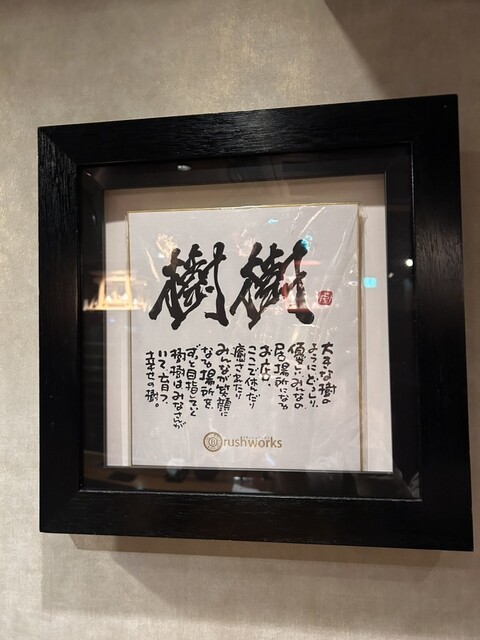 樹樹
大きな樹の
ようにどっしり、
優しいみんなの
居場所になる
お店。
ここで休んだり
癒されたり
みんなが笑顔に
なる場所を、
ずっと目指していく
樹樹はみなさんが
いて、育つ、
幸せの樹。
rushworks